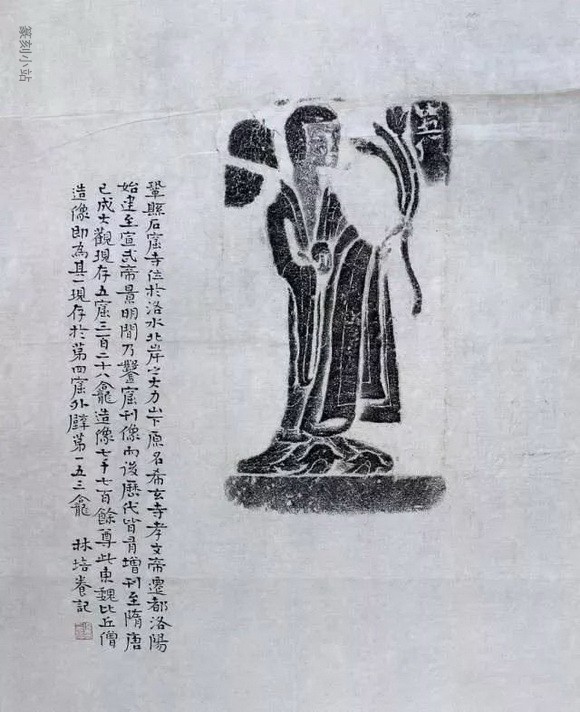 鞏縣石窟寺位於洛水北岸之大力山下原名希玄寺孝文帝遷都洛陽
始建至宣武帝景明間乃鑿窟刊像而後歷代皆有增刊至隋唐
已成大觀現存五窟三百二十八龕造像七千七百餘尊此東魏比丘僧
造像即為其一現存於第四窟外壁第一五三龕 林培養記
篆刻小站